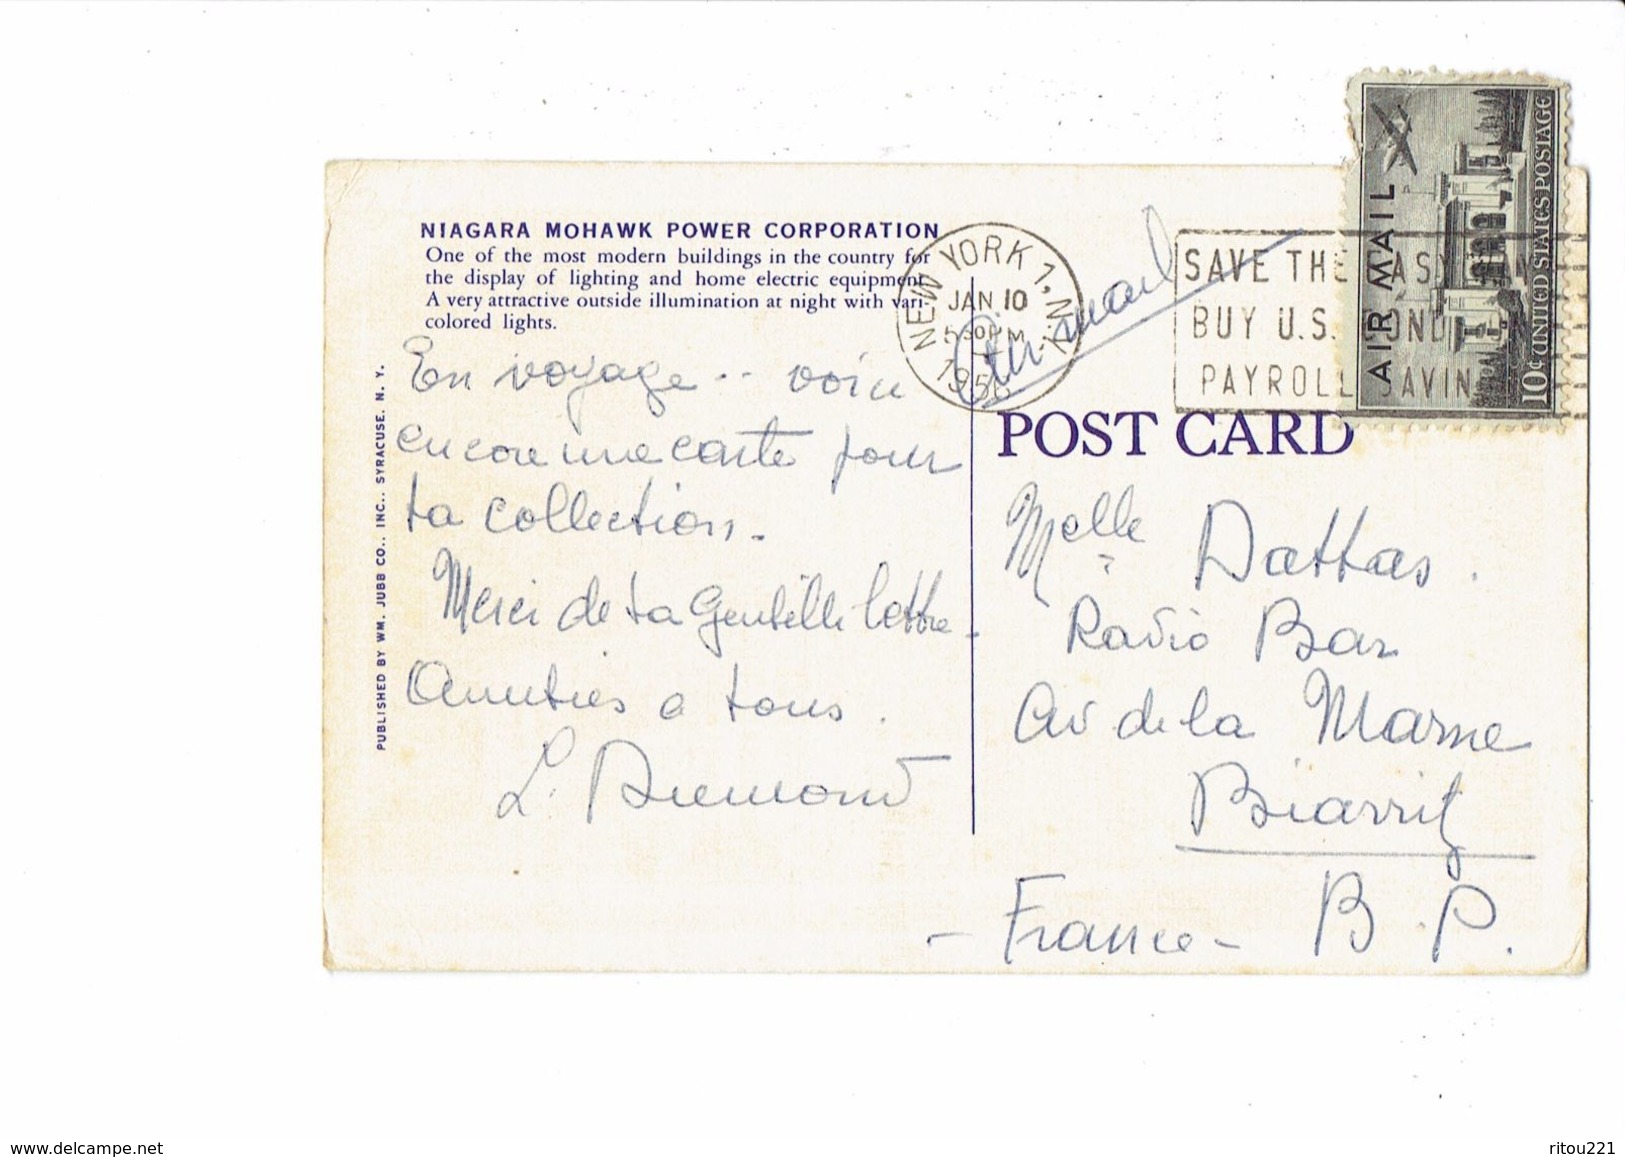 NIAGARA MOHAWK POWER CORPORATION
One of the most modern buildings in the country for
the display of lighting and home electric equipment.
A very attractive outside illumination at night with vari-
colored lights.
En voyage .. voici
encore une carte pour
ta collection.
Merci de ta Gentille lettre.
Amitiés a tous.
PUBLISHED BY WM. JUBB CO., INC., SYRACUSE, N. Y.
NEW YORK 1, N.Y.
JAN 10
5 30 PM
195
Air mail
SAVE THE EASY
BUY U.S. BONDS
PAYROLL SAVIN
AIR MAIL
10¢ UNITED STATES POSTAGE
POST CARD
Melle Dattas.
Radio Bar
Av de la Marne
Biarritz
- France - B.P.
www.delcampe.net
ritou221